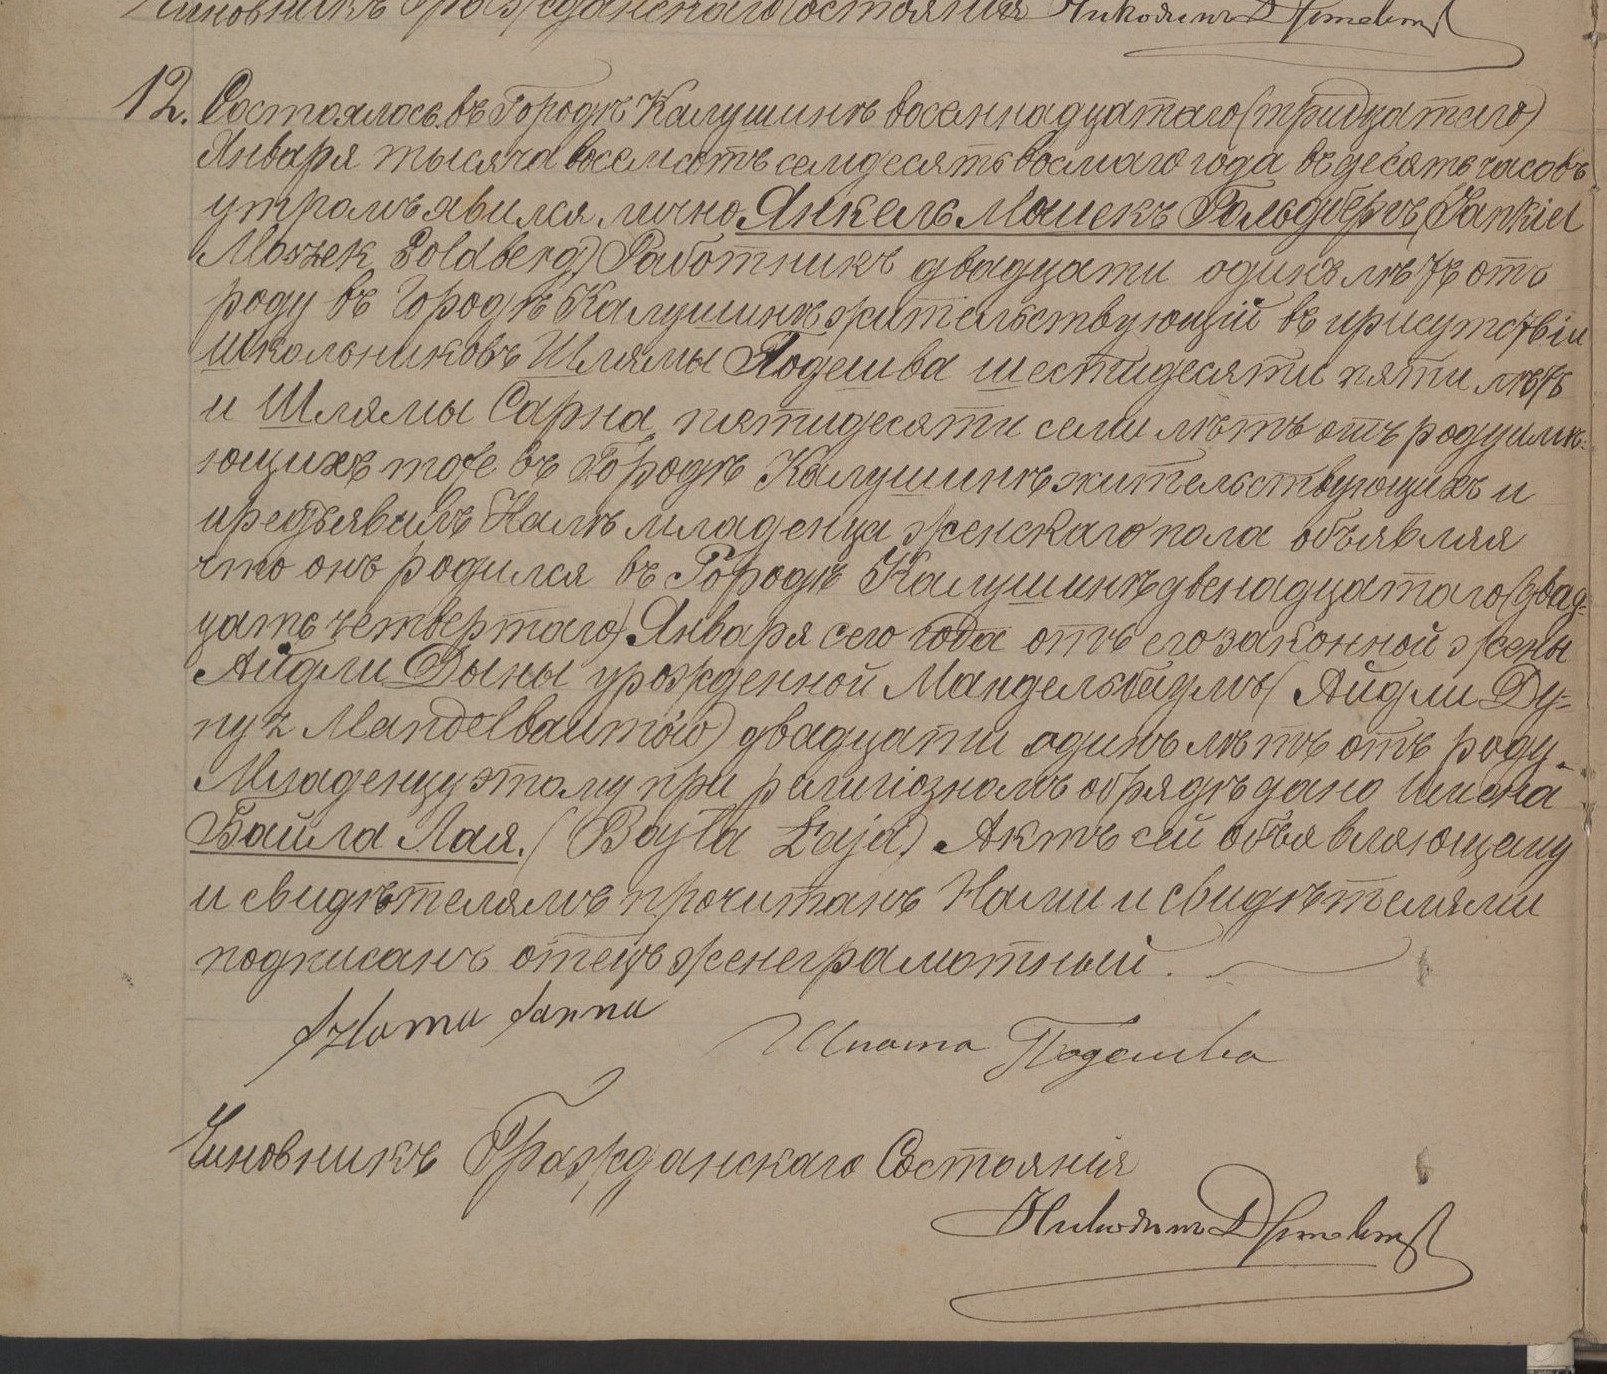 Чиновникъ Гражданскаго Состоянія
12. Состоялось въ Городѣ Калушинѣ восеннадцатаго (тридцатаго)
Января тысяча восемсотъ семдесятъ восмаго года въ десять часовъ
утромъ явился лично Янкель Мошекъ Гольдбергъ (Jankiel
Moszek Goldberg) Работникъ двадцати одинъ лѣтъ отъ
роду въ Городѣ Калушинѣ жительствующій въ присутствіи
школьниковъ Шлямы Подешва шестидесяти пяти лѣтъ
и Шлямы Сарна пятидесяти семи лѣтъ отъ роду имѣ-
ющихъ тоже въ Городѣ Калушинѣ жительствующихъ и
предъявилъ Намъ младенца женскаго пола объявляя
что онъ родился въ Городѣ Калушинѣ двенадцатаго (двад-
цать четвертаго) Января сего года отъ его законной жены
Айдли Дыны урожденной Мандельбаумъ (Айдли Dy-
ny z Mandelbaumów) двадцати одинъ лѣтъ отъ роду.
Младенцу этому при религіозномъ обрядѣ дано имена
Байла Лая. (Bajla Łaja) Актъ сей объявляющему
и свидѣтелямъ прочитанъ Нами и свидѣтелями
подписанъ отецъ же неграмотный.
Szlama Sarna Шлама Подешва
Чиновникъ Гражданскаго Состоянія